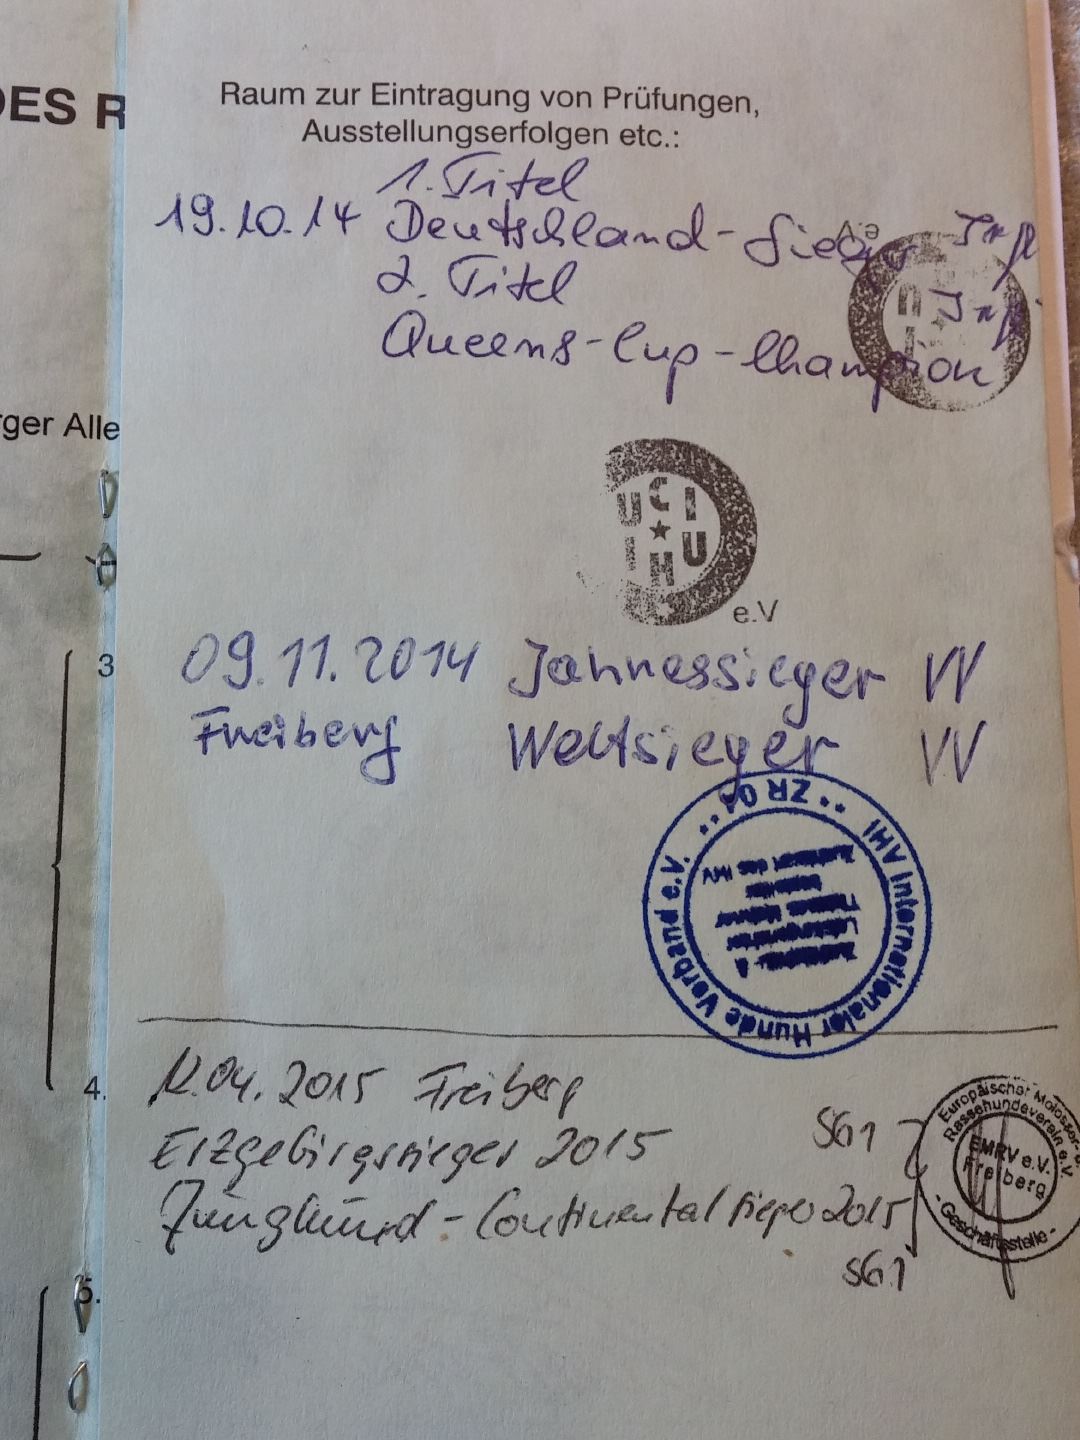 DES R
rger Alle
3
4.
5.
Raum zur Eintragung von Prüfungen,
Ausstellungserfolgen etc.:
1. Titel
19.10.14 Deutschland-Sieger
2. Titel
Queens-Cup-Champion
e.V
U C I
I H U
e.V
09.11.2014 Jahressieger VV
Freiberg Weltsieger VV
ZR 04
IHV Internationaler Hunde Verband e.V.
Zuchtwart des IHV
12.04.2015 Freiberg
Erzgebirgssieger 2015 SG1
Junghund-Continentalsieger 2015
SG1
Europäischer Molosser-
Rassehundeverein e.V.
EMRV e.V.
Freiberg
- Geschäftsstelle -